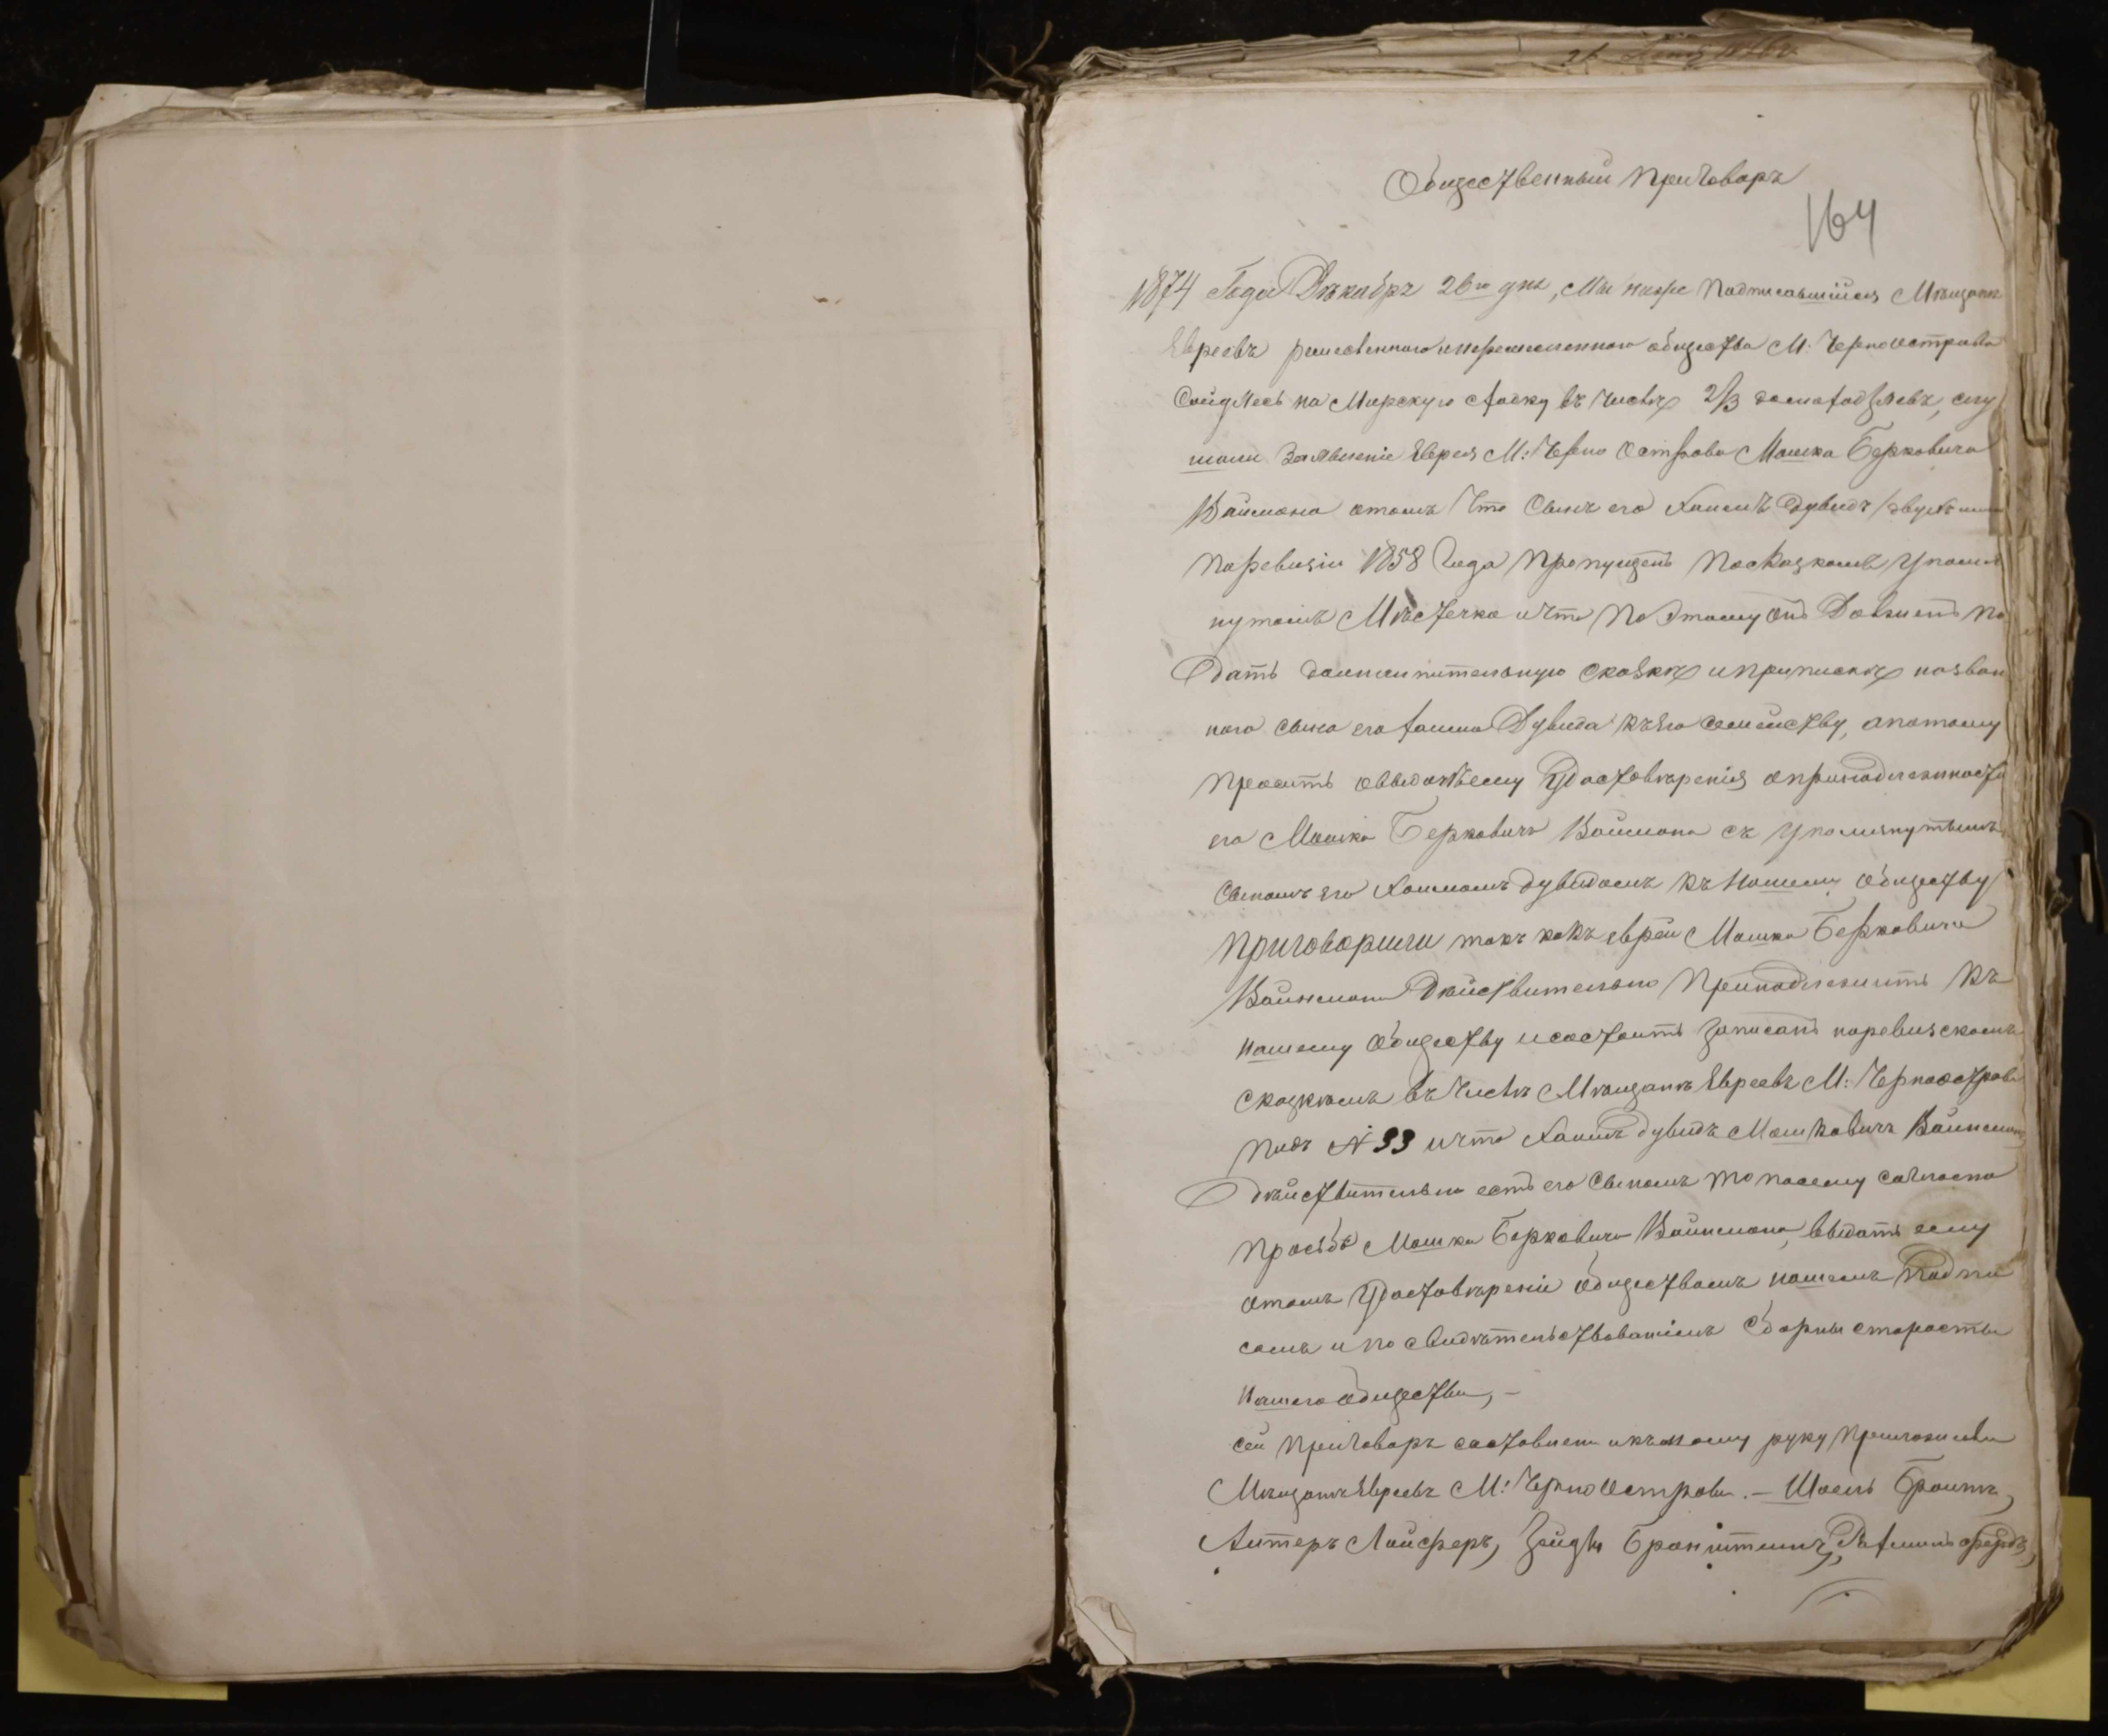 Общественный приговоръ
164
1874 Года Декабръ 26го дня, Мы ниже подписавшійся Мѣщанъ
Евреевъ общества М: Черноострова
Сойдясь на Мирскую сходку въ числѣ 2/3 домохозяевъ, слу
шали Заявленіе Еврея М: Черно Острова Мошка Берковича
Ваймана отомъ Что Сынъ его Хаимъ Дувидъ
Поревизіи 1858 Года пропущенъ посказкамъ упомя
нутомъ Мѣстечка ичто По Этому онъ Долженъ по
дать дополнительную сказку иприписку назван
наго сына его Хаима Дувида къего семейству, апотому
проситъ овыдачѣему Удостовѣренія опринадлежности
его Мошка Берковича Ваймана съ упомянутымъ
Сыномъ его Хаимомъ дувидомъ къ Нашему обществу
приговорили такъ какъ еврей Мошка Берковича
Вайнмана Дѣйствительно Принадлежитъ къ
нашему Обществу исостоитъ записанъ поревизскомъ
сказкѣмъ въ числѣ Мѣщанъ Евреевъ М: Черноострова
подъ № 93 ичто Хаимъ дувидъ Мошковичъ Вайнман
дѣйствительно есть его Сыномъ то посему согласно
просьбѣ Мошка Берковича Вайнмана, выдать ему
отомъ Удостовѣреніе обществомъ нашемъ Подпи
сомъ и по свидѣтельствованіемъ Сборны старосты
Нашего общества, –
сей приговоръ составлен икътому руку приложили
Мѣщанъ Евреевъ М: Черно Острова. –
Литеръ Лайферъ,